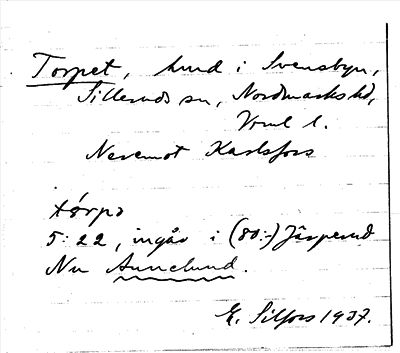 Torpet, hmd i Svensbyn,
Silleruds sn, Nordmarks hd,
Vrml l.
Nevemot Karlsfors
tórpə
5:22, ingår i (80:-) Jäsperud
Nu Annelund.
E. Silfors 1937.